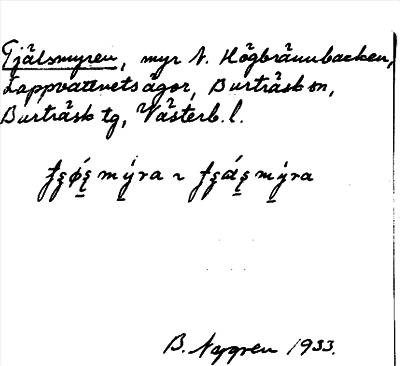 Tjälsmyren, myr N. Högbrännbacken,
Lappvattnets ägor, Burträsk sn,
Burträsk tg, Västerb. l.
B. Nygren 1933.